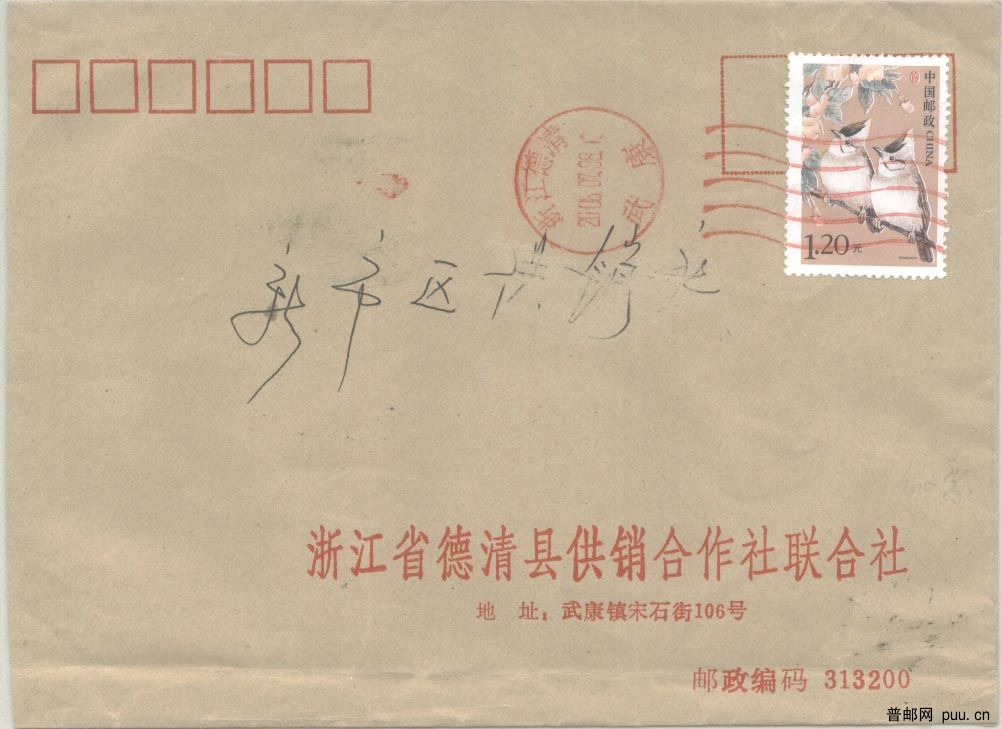 中国邮政 CHINA
1.20元
浙江德清
2006.07.08.1
武康
新市区供销社
浙江省德清县供销合作社联合社
地 址：武康镇宋石街106号
邮政编码 313200
普邮网 puu.cn